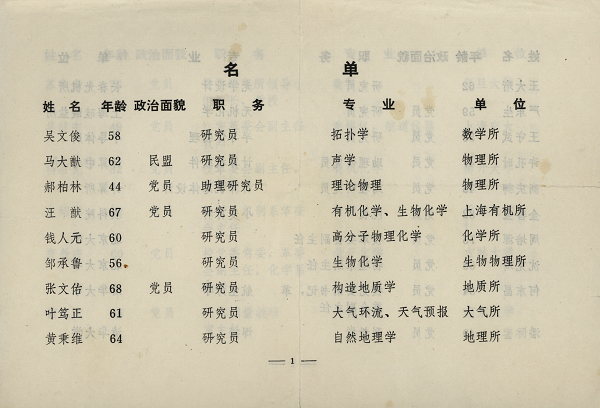 名 单
姓 名 年龄 政治面貌 职 务 专 业 单 位
吴文俊 58 研究员 拓扑学 数学所
马大猷 62 民盟 研究员 声学 物理所
郝柏林 44 党员 助理研究员 理论物理 物理所
汪 猷 67 党员 研究员 有机化学、生物化学 上海有机所
钱人元 60 研究员 高分子物理化学 化学所
邹承鲁 56 研究员 生物化学 生物物理所
张文佑 68 党员 研究员 构造地质学 地质所
叶笃正 61 研究员 大气环流、天气预报 大气所
黄秉维 64 研究员 自然地理学 地理所
— 1 —